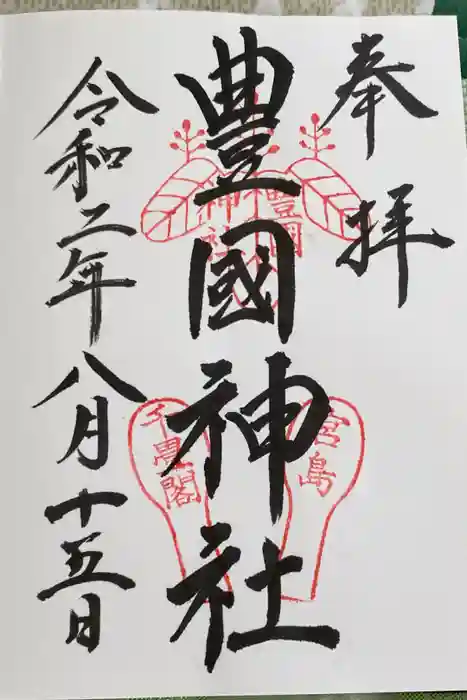 奉拝
豊國神社
令和二年八月十五日
豊国
神社
宮島
千畳閣